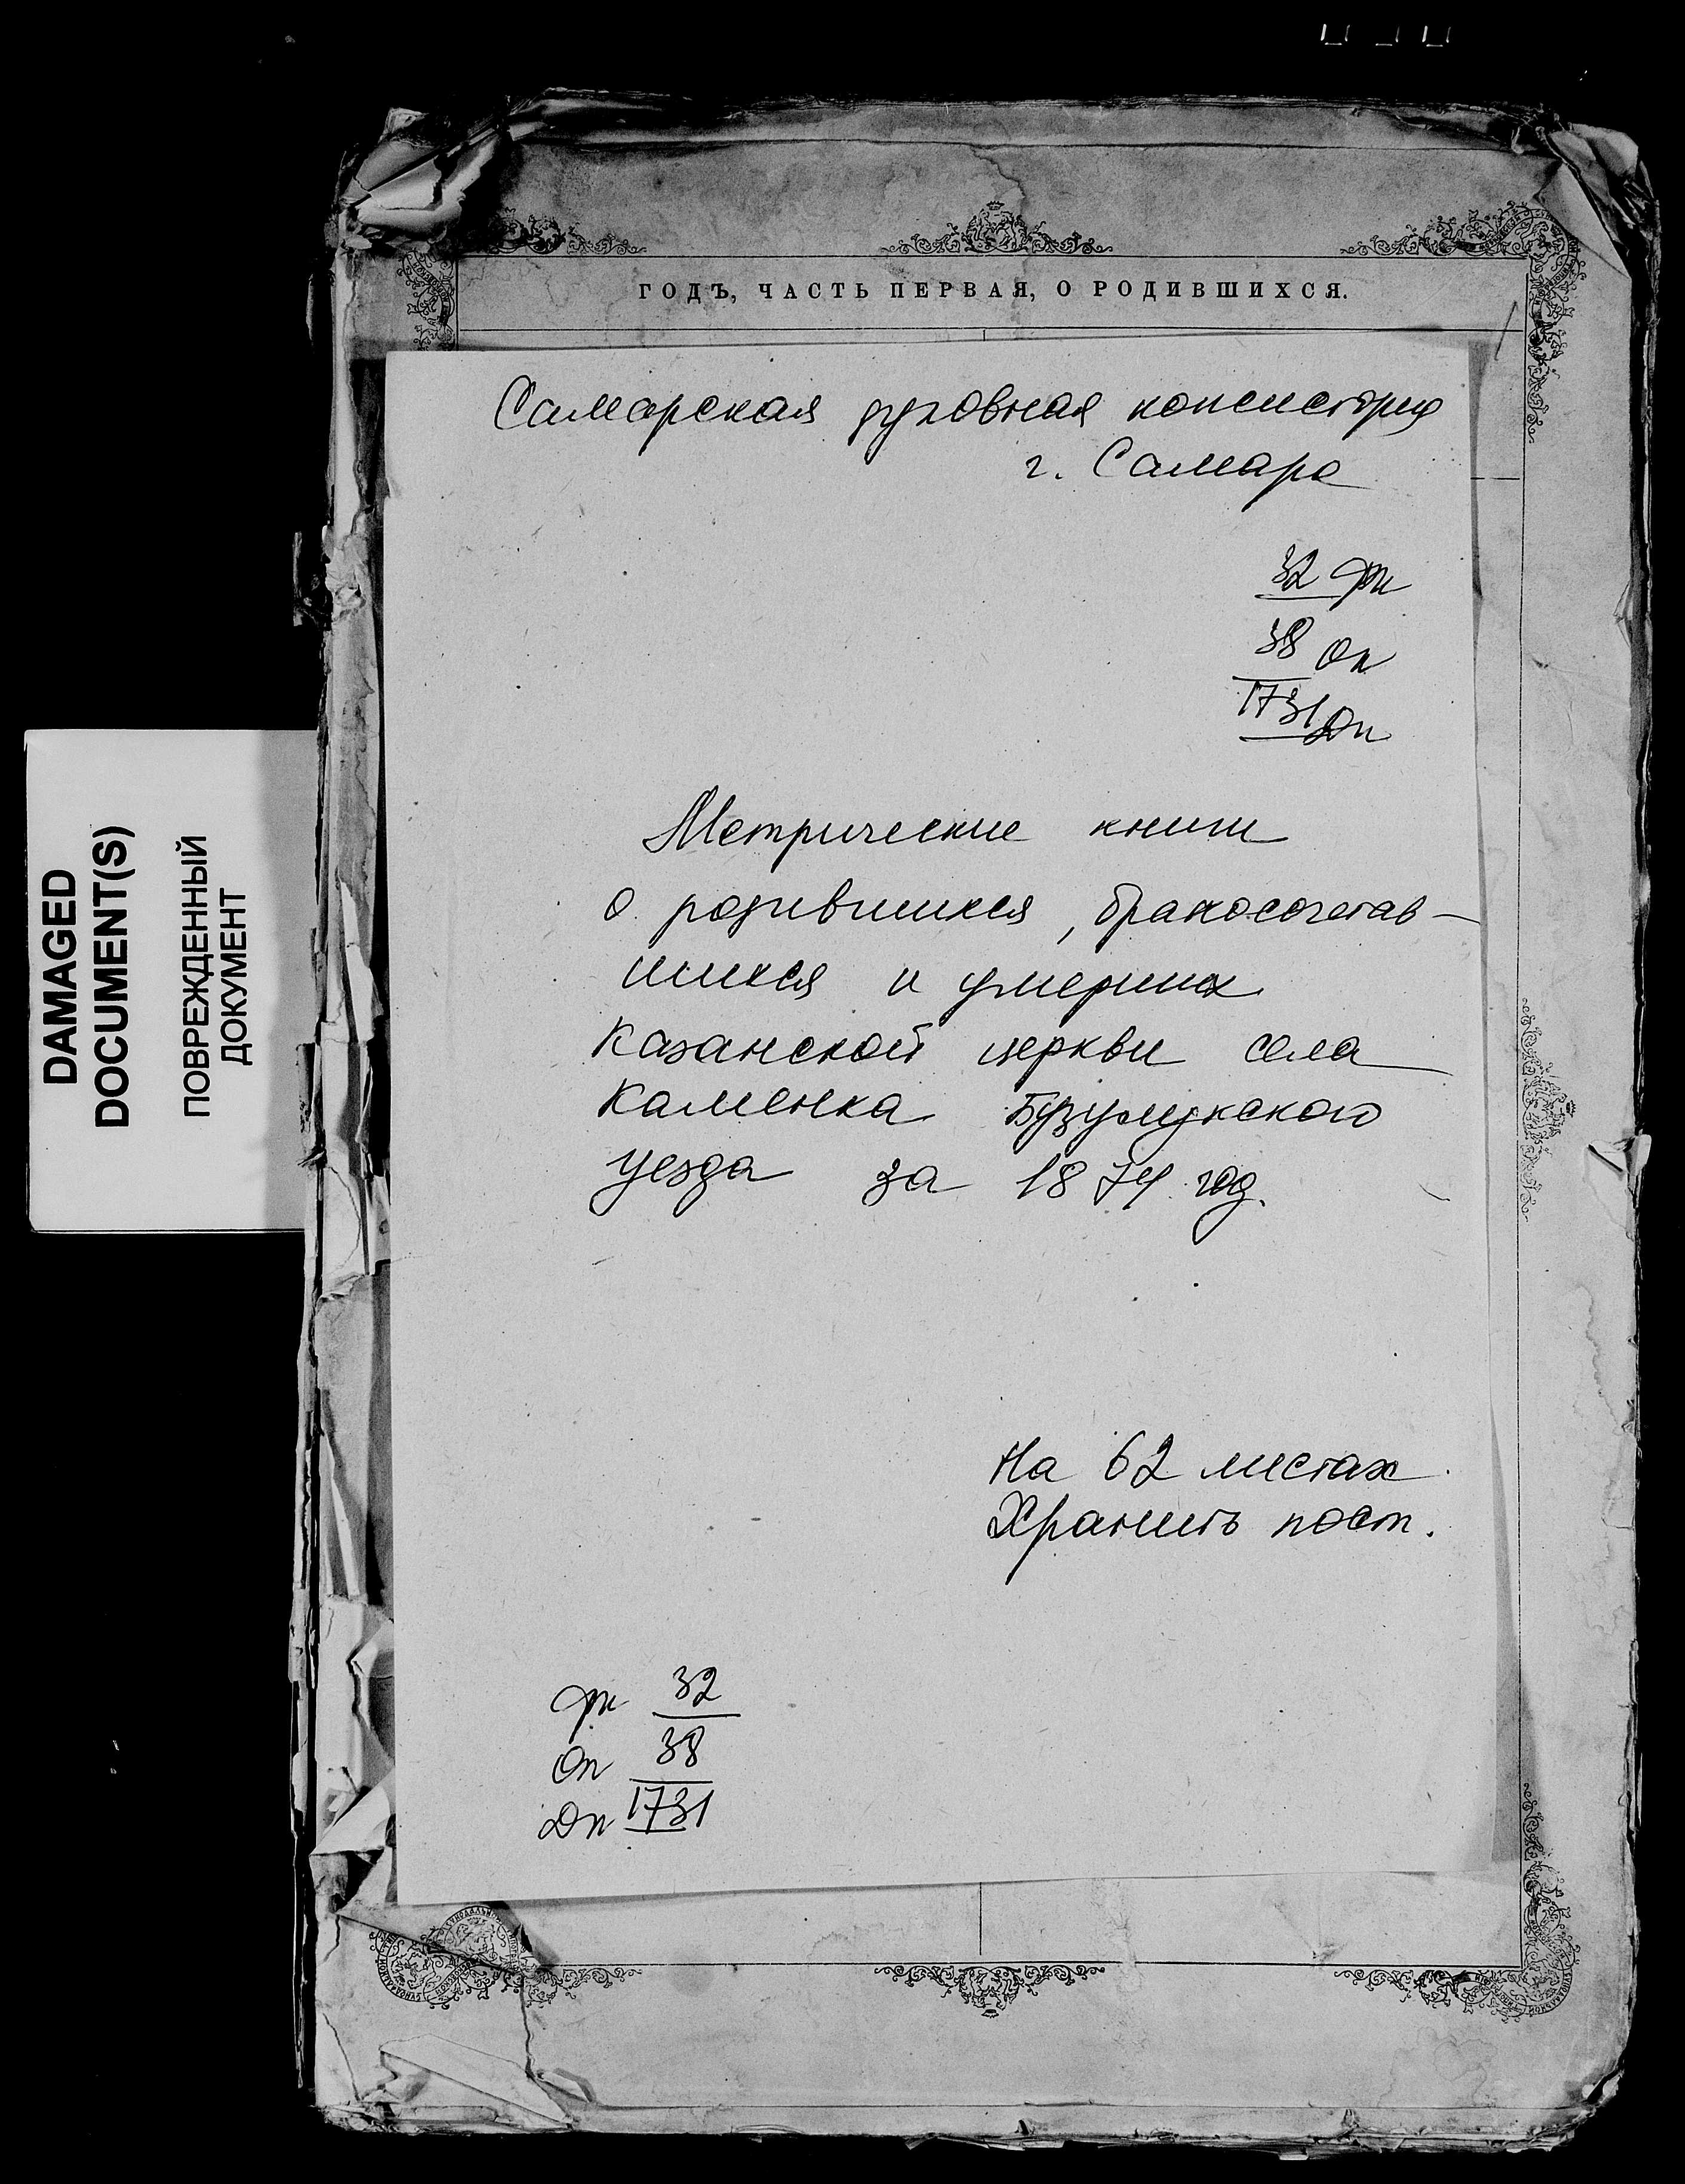 ГОДЪ, ЧАСТЬ ПЕРВАЯ, О РОДИВШИХСЯ.
Самарская духовная консистория
г. Самара
32 фн
38 Оп
1731 Дп
Метрические книги
о родившихся, бракосочетав-
шихся и умерших
Казанской церкви села
Каменка Бузулукского
уезда за 1874 год.
На 62 листах
Хранить пост.
фн 32
Оп 38
Дп 1731
DAMAGED
DOCUMENT(S)
ПОВРЕЖДЕННЫЙ
ДОКУМЕНТ